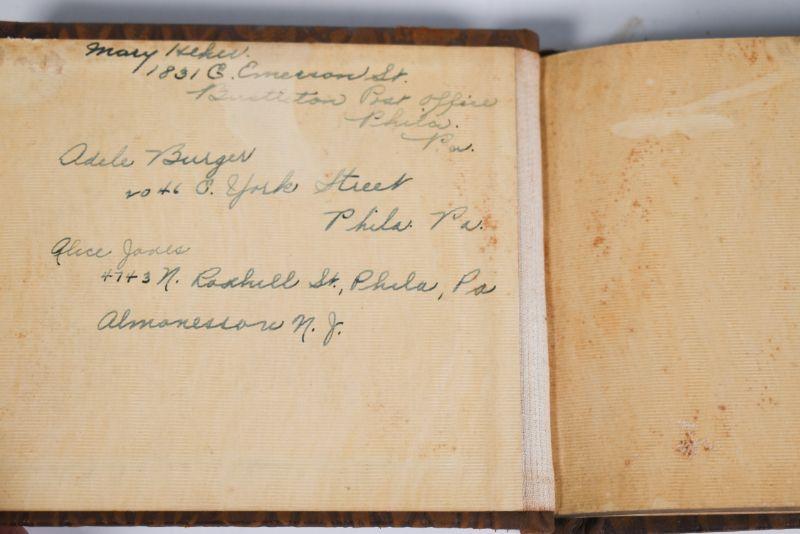 Mary Heker.
1831 E. Emerson St.
Bustleton Post Office
Phila.
Pa.
Adele Burger
2046 E. York Street
Phila. Pa.
Alice Jones
4743 N. Roshill St., Phila, Pa
Almonesson N. J.